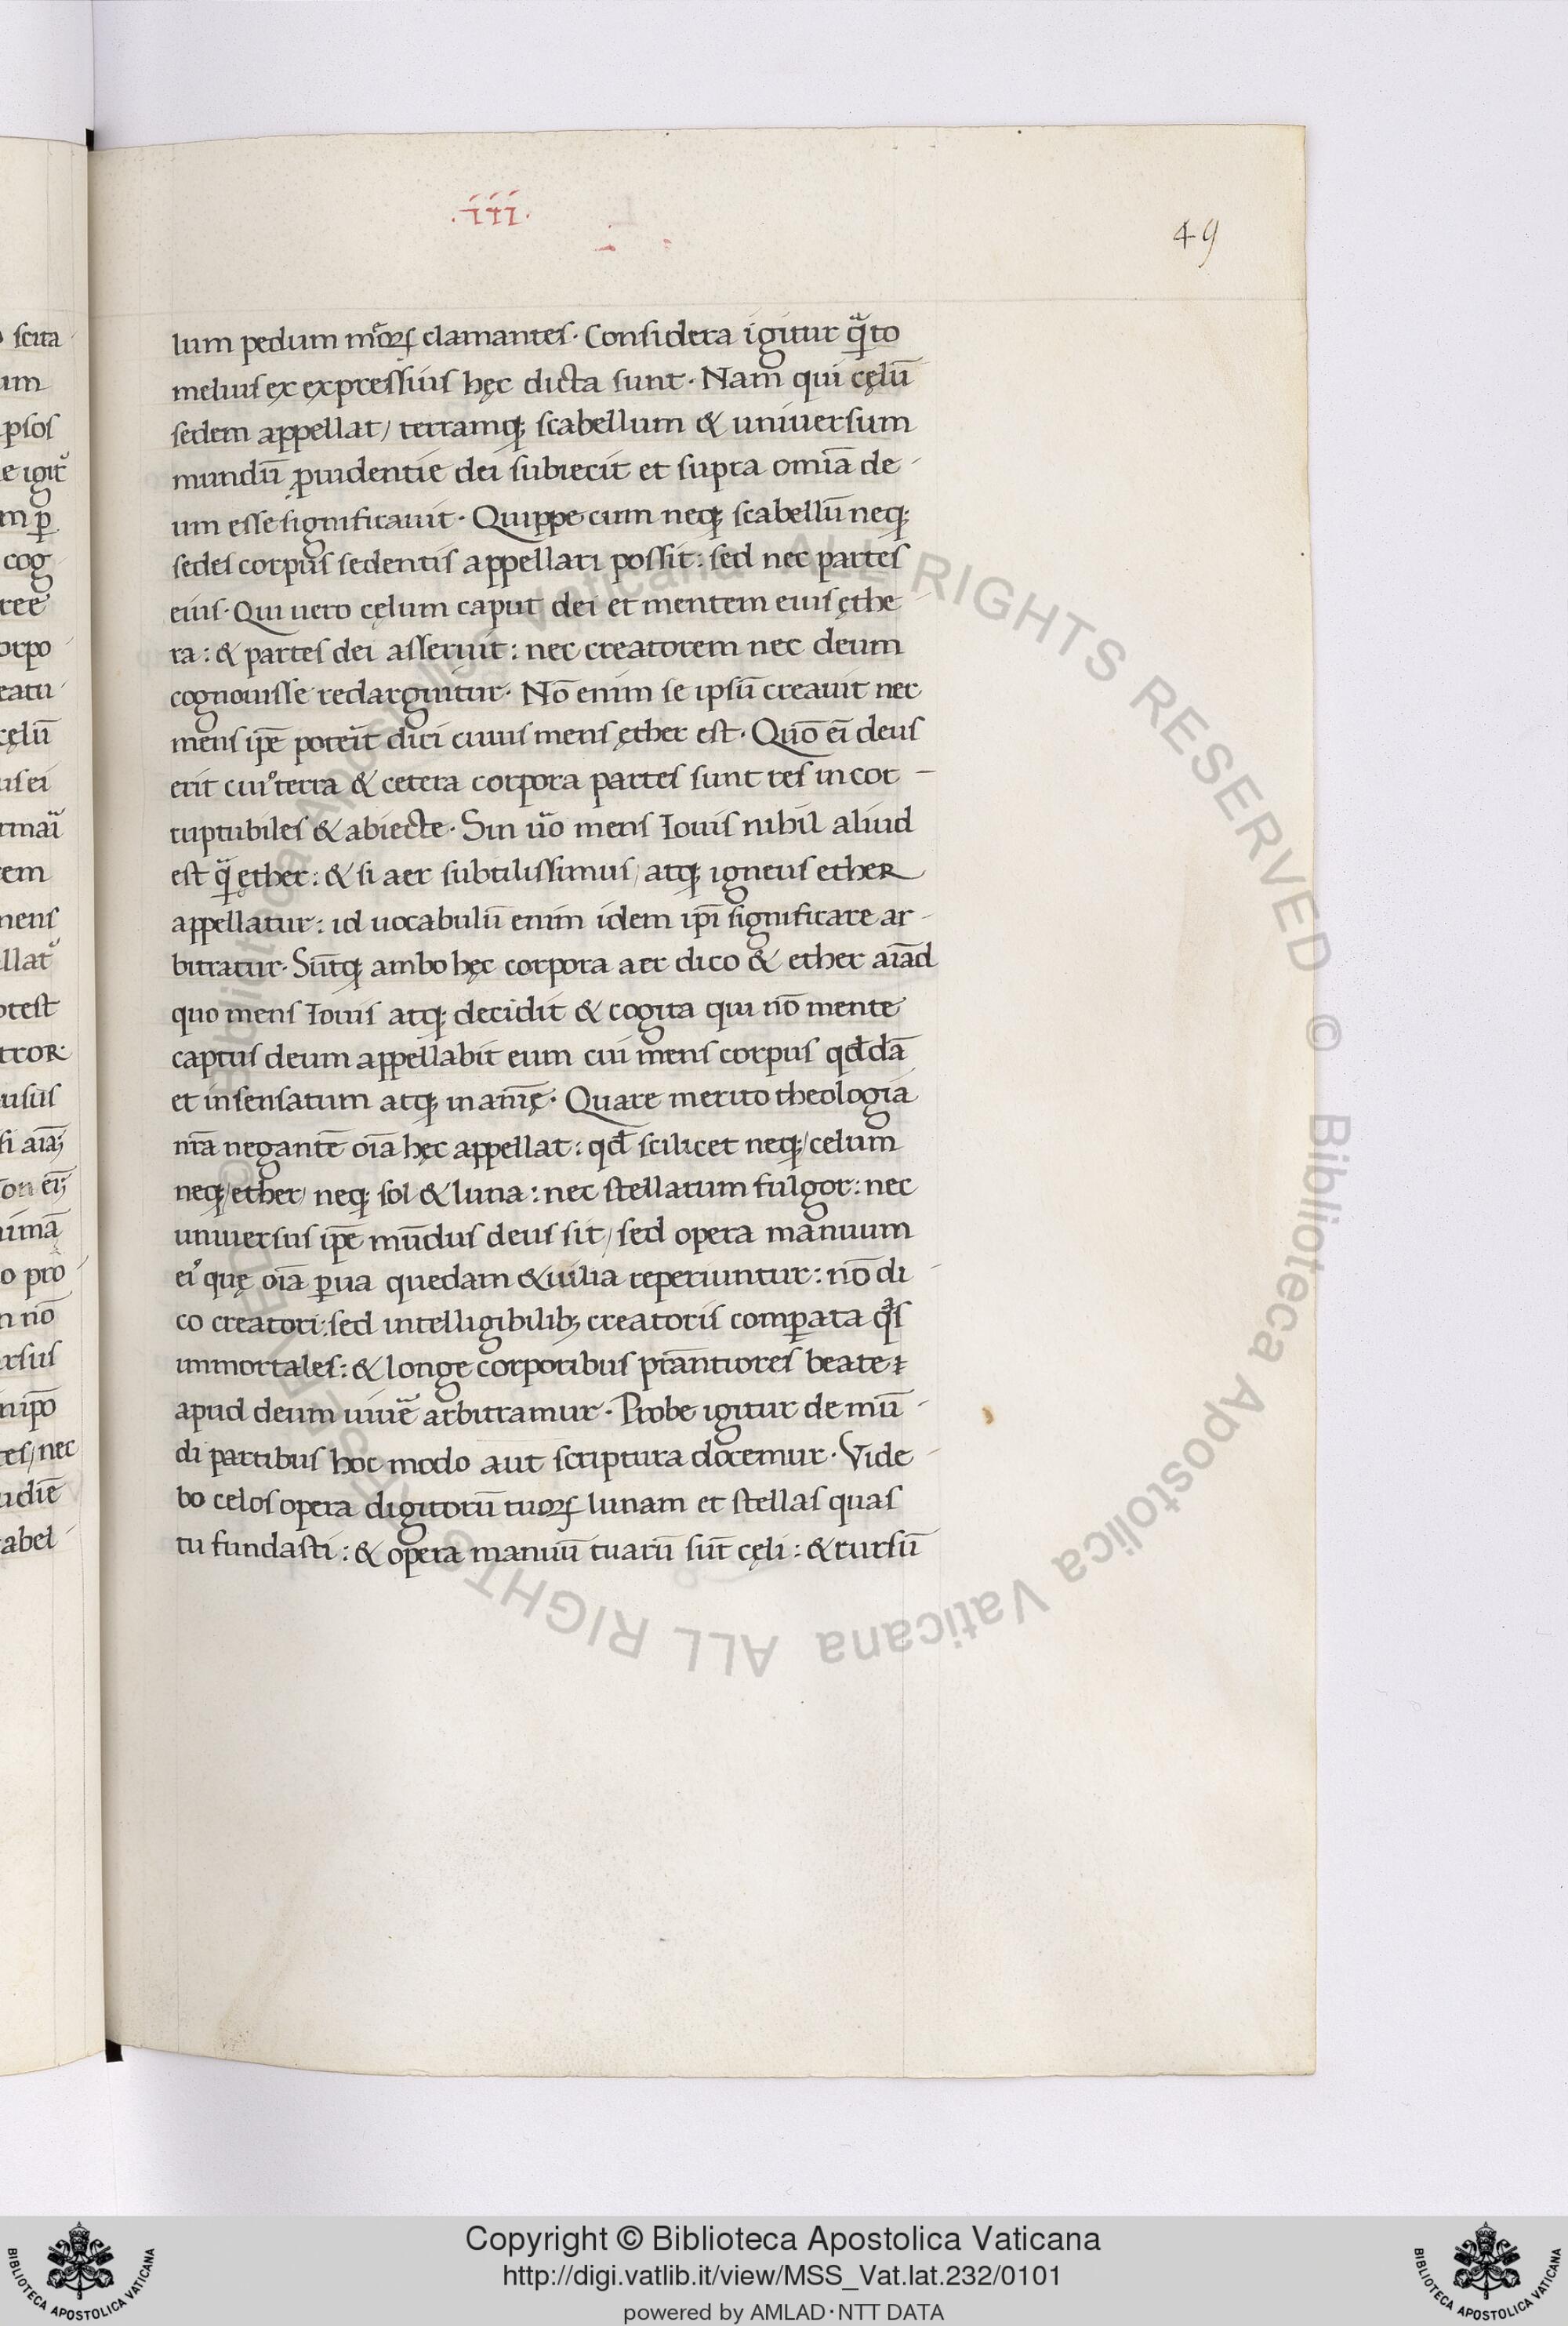 .iii.
49
lum pedum meoꝝ clamantes. Considera igitur q̃to
melius ex expressius hęc dicta sunt. Nam qui cęlũ
sedem appellat / terramqꝫ scabellum & uniuersum
mundũ ꝓuidentie dei subiecit et supra omĩa de-
um esse significauit. Quippe cum neqꝫ scabellũ neqꝫ
sedes corpus sedentis appellari possit: sed nec partes
eius. Qui uero cęlum caput dei et mentem eius ęthe-
ra: & partes dei asseruit: nec creatorem nec deum
cognouisse redarguitur. Nõ enim se ipsũ creauit nec
mens ip̃e poterit dici cuius mens ęther est. Quõ eĩ deus
erit cuiꝰ terra & cetera corpora partes sunt res in cor-
ruptibiles & abiecte. Sin ũo mens Iouis nihil aliud
est q̃ ęther: & si aer subtilissimus / atqꝫ igneus ether
appellatur: id uocabulũ enim idem ip̃i significare ar-
bitratur. Sũtqꝫ ambo hęc corpora aer dico & ether aiãd
quo mens Iouis atqꝫ decidit & cogita qui nõ mente
captus deum appellabit eum cui mens corpus qđdã
et insensatum atqꝫ inanimę. Quare merito theologia
nr̃a negantẽ oĩa hęc appellat: qđ scilicet neqꝫ / celum
neqꝫ / ether / neqꝫ sol & luna: nec stellarum fulgor: nec
uniuersus ip̃e mũdus deus sit / sed opera manuum
eiꝰ quę oĩa ꝑua quedam & uilia reperiuntur: nõ di-
co creatori: sed intelligibilibꝫ creatoris comꝑata q̃s
immortales: & longe corporibus prãntiores beateqꝫ
apud deum uiuẽ arbitramur. Probe igitur de mũ-
di partibus hoc modo aut scriptura docemur. Vide-
bo celos opera digitorũ tuoꝝ lunam et stellas quas
tu fundasti: & opera manuũ tuarũ sũt cęli: & rursũ
Copyright © Biblioteca Apostolica Vaticana
http://digi.vatlib.it/view/MSS_Vat.lat.232/0101
powered by AMLAD·NTT DATA